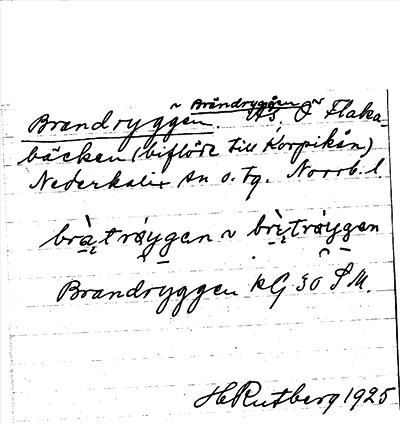 ~ Brändryggen ~
Brandryggen. Ås. Ö Flaka-
bäcken (biflöde till Korpikån)
Nederkalix sn o. tg. Norrb. l.
~
Brandryggen kG 30 S M.
H Rutberg 1925